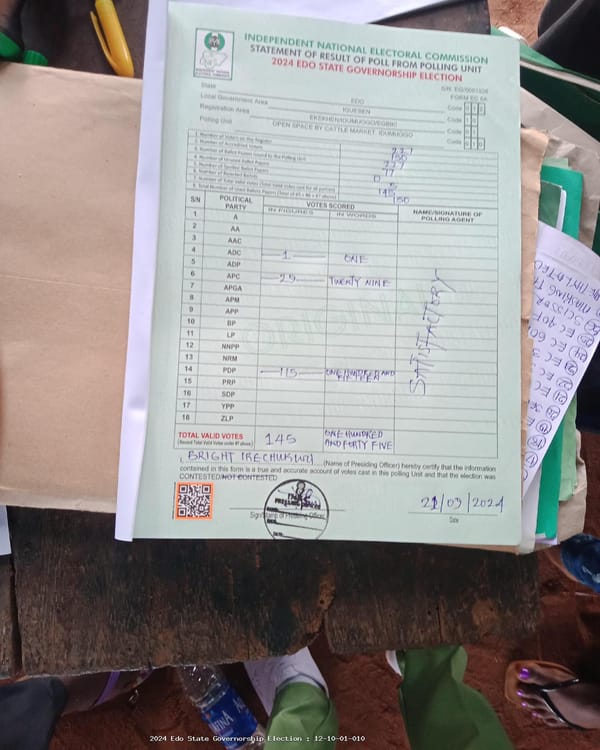 INDEPENDENT NATIONAL ELECTORAL COMMISSION
STATEMENT OF RESULT OF POLL FROM POLLING UNIT
2024 EDO STATE GOVERNORSHIP ELECTION
FORM EC 8A
State EDO Code
Local Government Area Code
Registration Area Code
Polling Unit OPEN SPACE BY CATTLE MARKET, IDUMUOGO Code
1. Number of Voters on the Register
2. Number of Accredited Voters
3. Number of Ballot Papers Issued to the Polling Unit
4. Number of Unused Ballot Papers
5. Number of Spoiled Ballot Papers
6. Number of Rejected Ballots
7. Number of Total Valid Votes (Total Valid Votes cast for all parties) 145
8. Total Number of Used Ballot Papers (Total of #5 + #6 + #7 above) 150
S/N POLITICAL PARTY VOTES SCORED NAME/SIGNATURE OF POLLING AGENT
IN FIGURES IN WORDS
1 A
2 AA
3 AAC
4 ADC 1 ONE
5 ADP
6 APC 29 TWENTY NINE
7 APGA
8 APM
9 APP
10 BP
11 LP
12 NNPP
13 NRM
14 PDP 115 ONE HUNDRED AND FIFTEEN
15 PRP
16 SDP
17 YPP
18 ZLP
SATISFACTORY
TOTAL VALID VOTES 145 ONE HUNDRED
(Record Total Valid Votes under #7 above) AND FORTY FIVE
I, BRIGHT (Name of Presiding Officer) hereby certify that the information
contained in this form is a true and accurate account of votes cast in this polling Unit and that the election was
CONTESTED/NOT CONTESTED
21/09/2024
Signature of Presiding Officer Date
2024 Edo State Governorship Election : 12-10-01-010